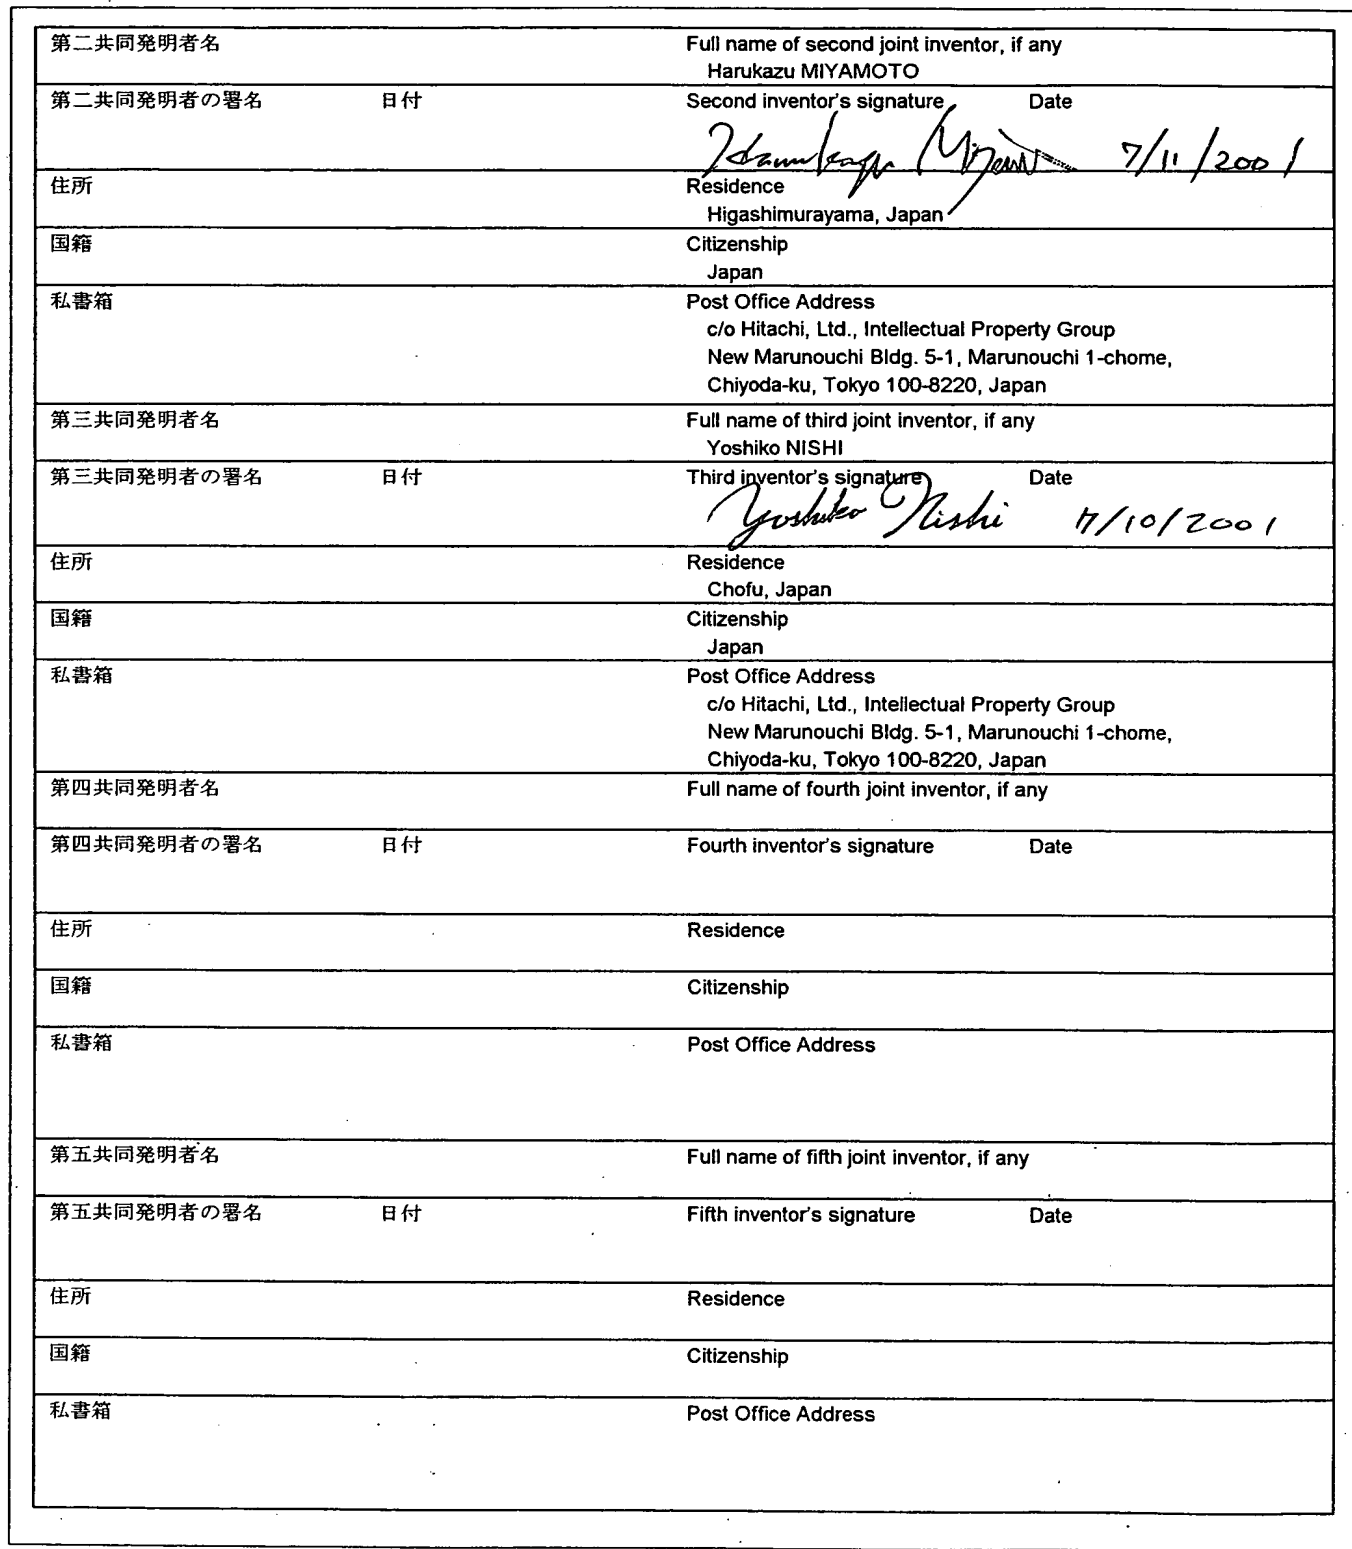 第二共同発明者名 Full name of second joint inventor, if any
Harukazu MIYAMOTO
第二共同発明者の署名 日付 Second inventor's signature Date
Harukazu Miyamoto 7/11/2001
住所 Residence
Higashimurayama, Japan
国籍 Citizenship
Japan
私書箱 Post Office Address
c/o Hitachi, Ltd., Intellectual Property Group
New Marunouchi Bldg. 5-1, Marunouchi 1-chome,
Chiyoda-ku, Tokyo 100-8220, Japan
第三共同発明者名 Full name of third joint inventor, if any
Yoshiko NISHI
第三共同発明者の署名 日付 Third inventor's signature Date
Yoshiko Nishi 7/10/2001
住所 Residence
Chofu, Japan
国籍 Citizenship
Japan
私書箱 Post Office Address
c/o Hitachi, Ltd., Intellectual Property Group
New Marunouchi Bldg. 5-1, Marunouchi 1-chome,
Chiyoda-ku, Tokyo 100-8220, Japan
第四共同発明者名 Full name of fourth joint inventor, if any
第四共同発明者の署名 日付 Fourth inventor's signature Date
住所 Residence
国籍 Citizenship
私書箱 Post Office Address
第五共同発明者名 Full name of fifth joint inventor, if any
第五共同発明者の署名 日付 Fifth inventor's signature Date
住所 Residence
国籍 Citizenship
私書箱 Post Office Address